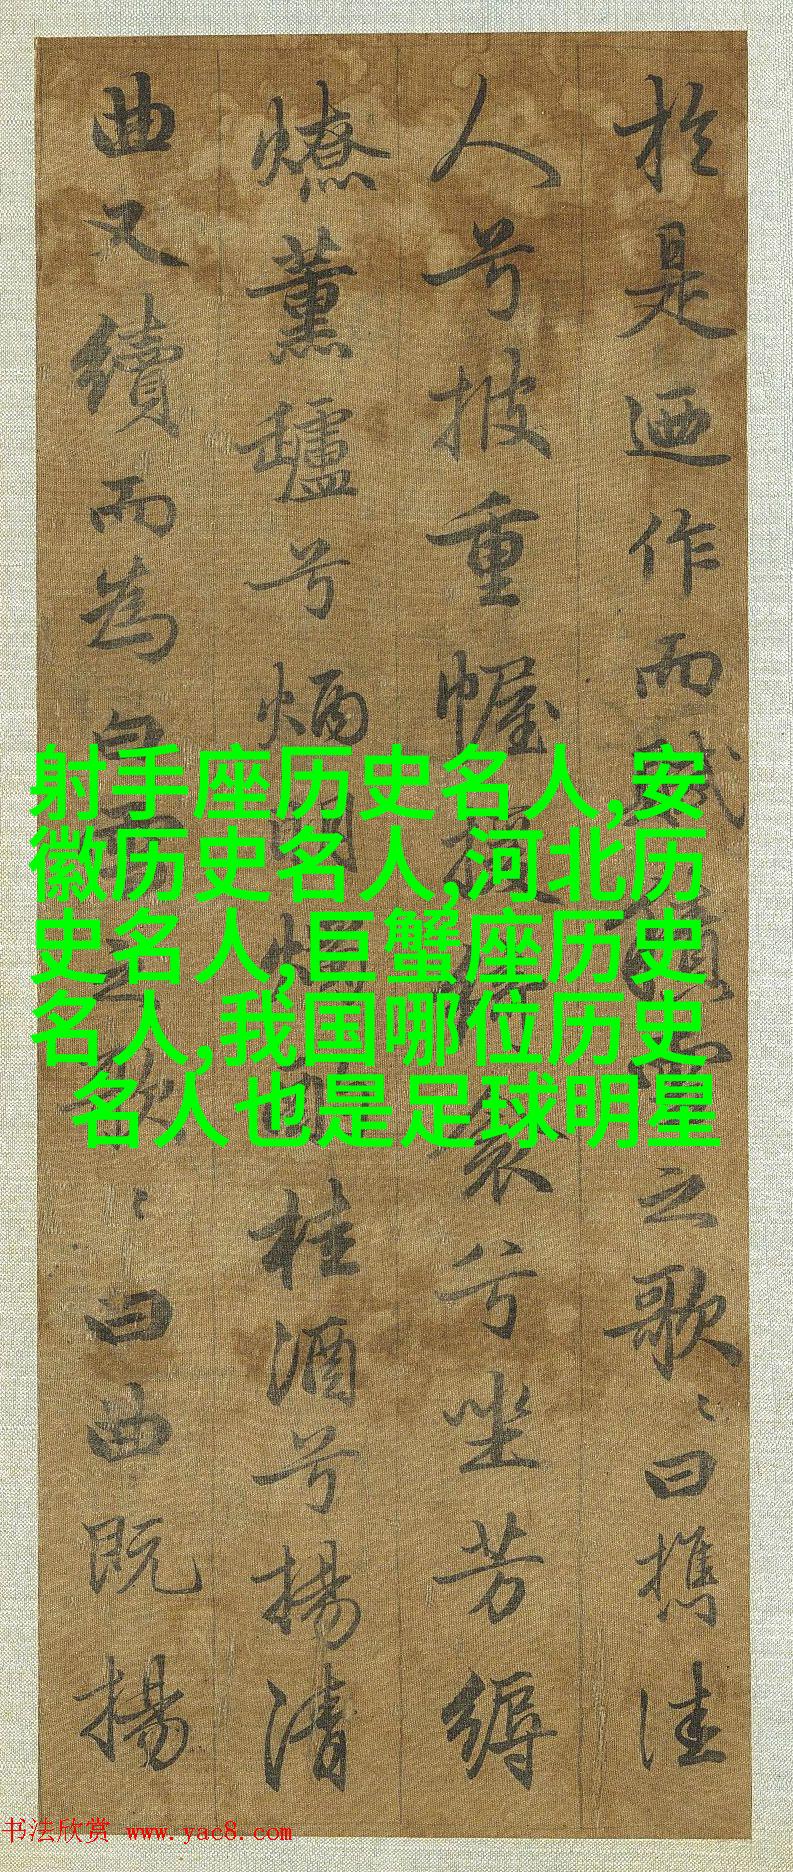 於是迺作而賦積雪之歌〻曰攜佳
人兮披重幄援綺衾兮坐芳縟
燎薰罏兮焫明燭酌桂酒兮揚清
曲又續而為白雪之歌〻曰曲既揚
射手座历史名人,安
徽历史名人,河北历
史名人,巨蟹座历史
名人,我国哪位历史
名人也是足球明星
书法欣赏 www.yac8.com